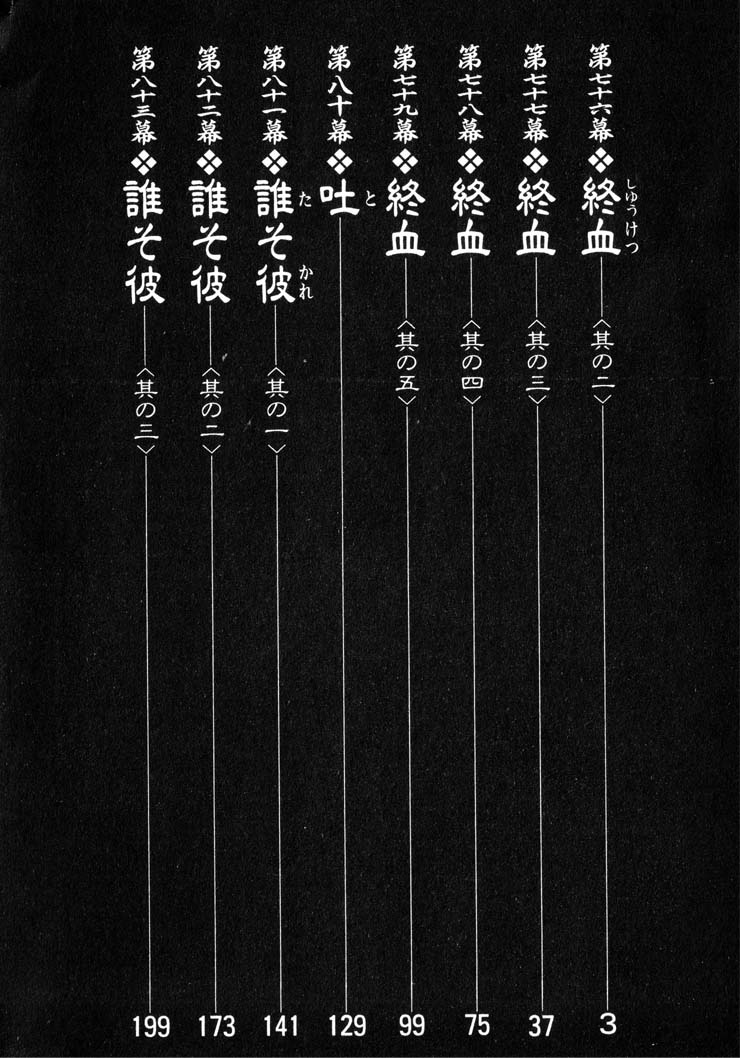 第七十六幕❖終血〈其の二〉3
しゅうけつ
第七十七幕❖終血〈其の三〉37
第七十八幕❖終血〈其の四〉75
第七十九幕❖終血〈其の五〉99
第八十幕❖吐129
と
第八十一幕❖誰そ彼〈其の一〉141
たかれ
第八十二幕❖誰そ彼〈其の二〉173
第八十三幕❖誰そ彼〈其の三〉199